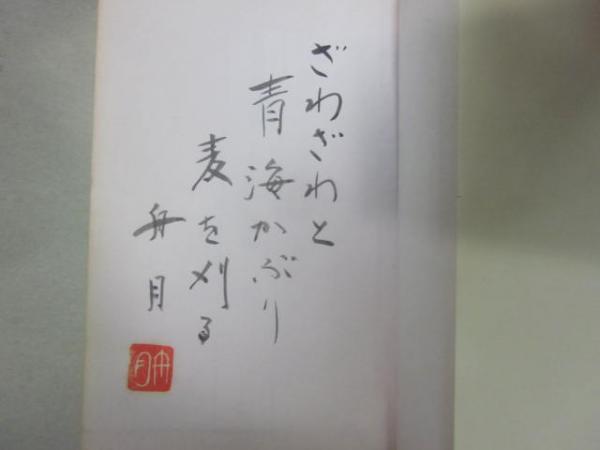 ざわざわと
青海かぶり
麦を刈る
舟月
舟月